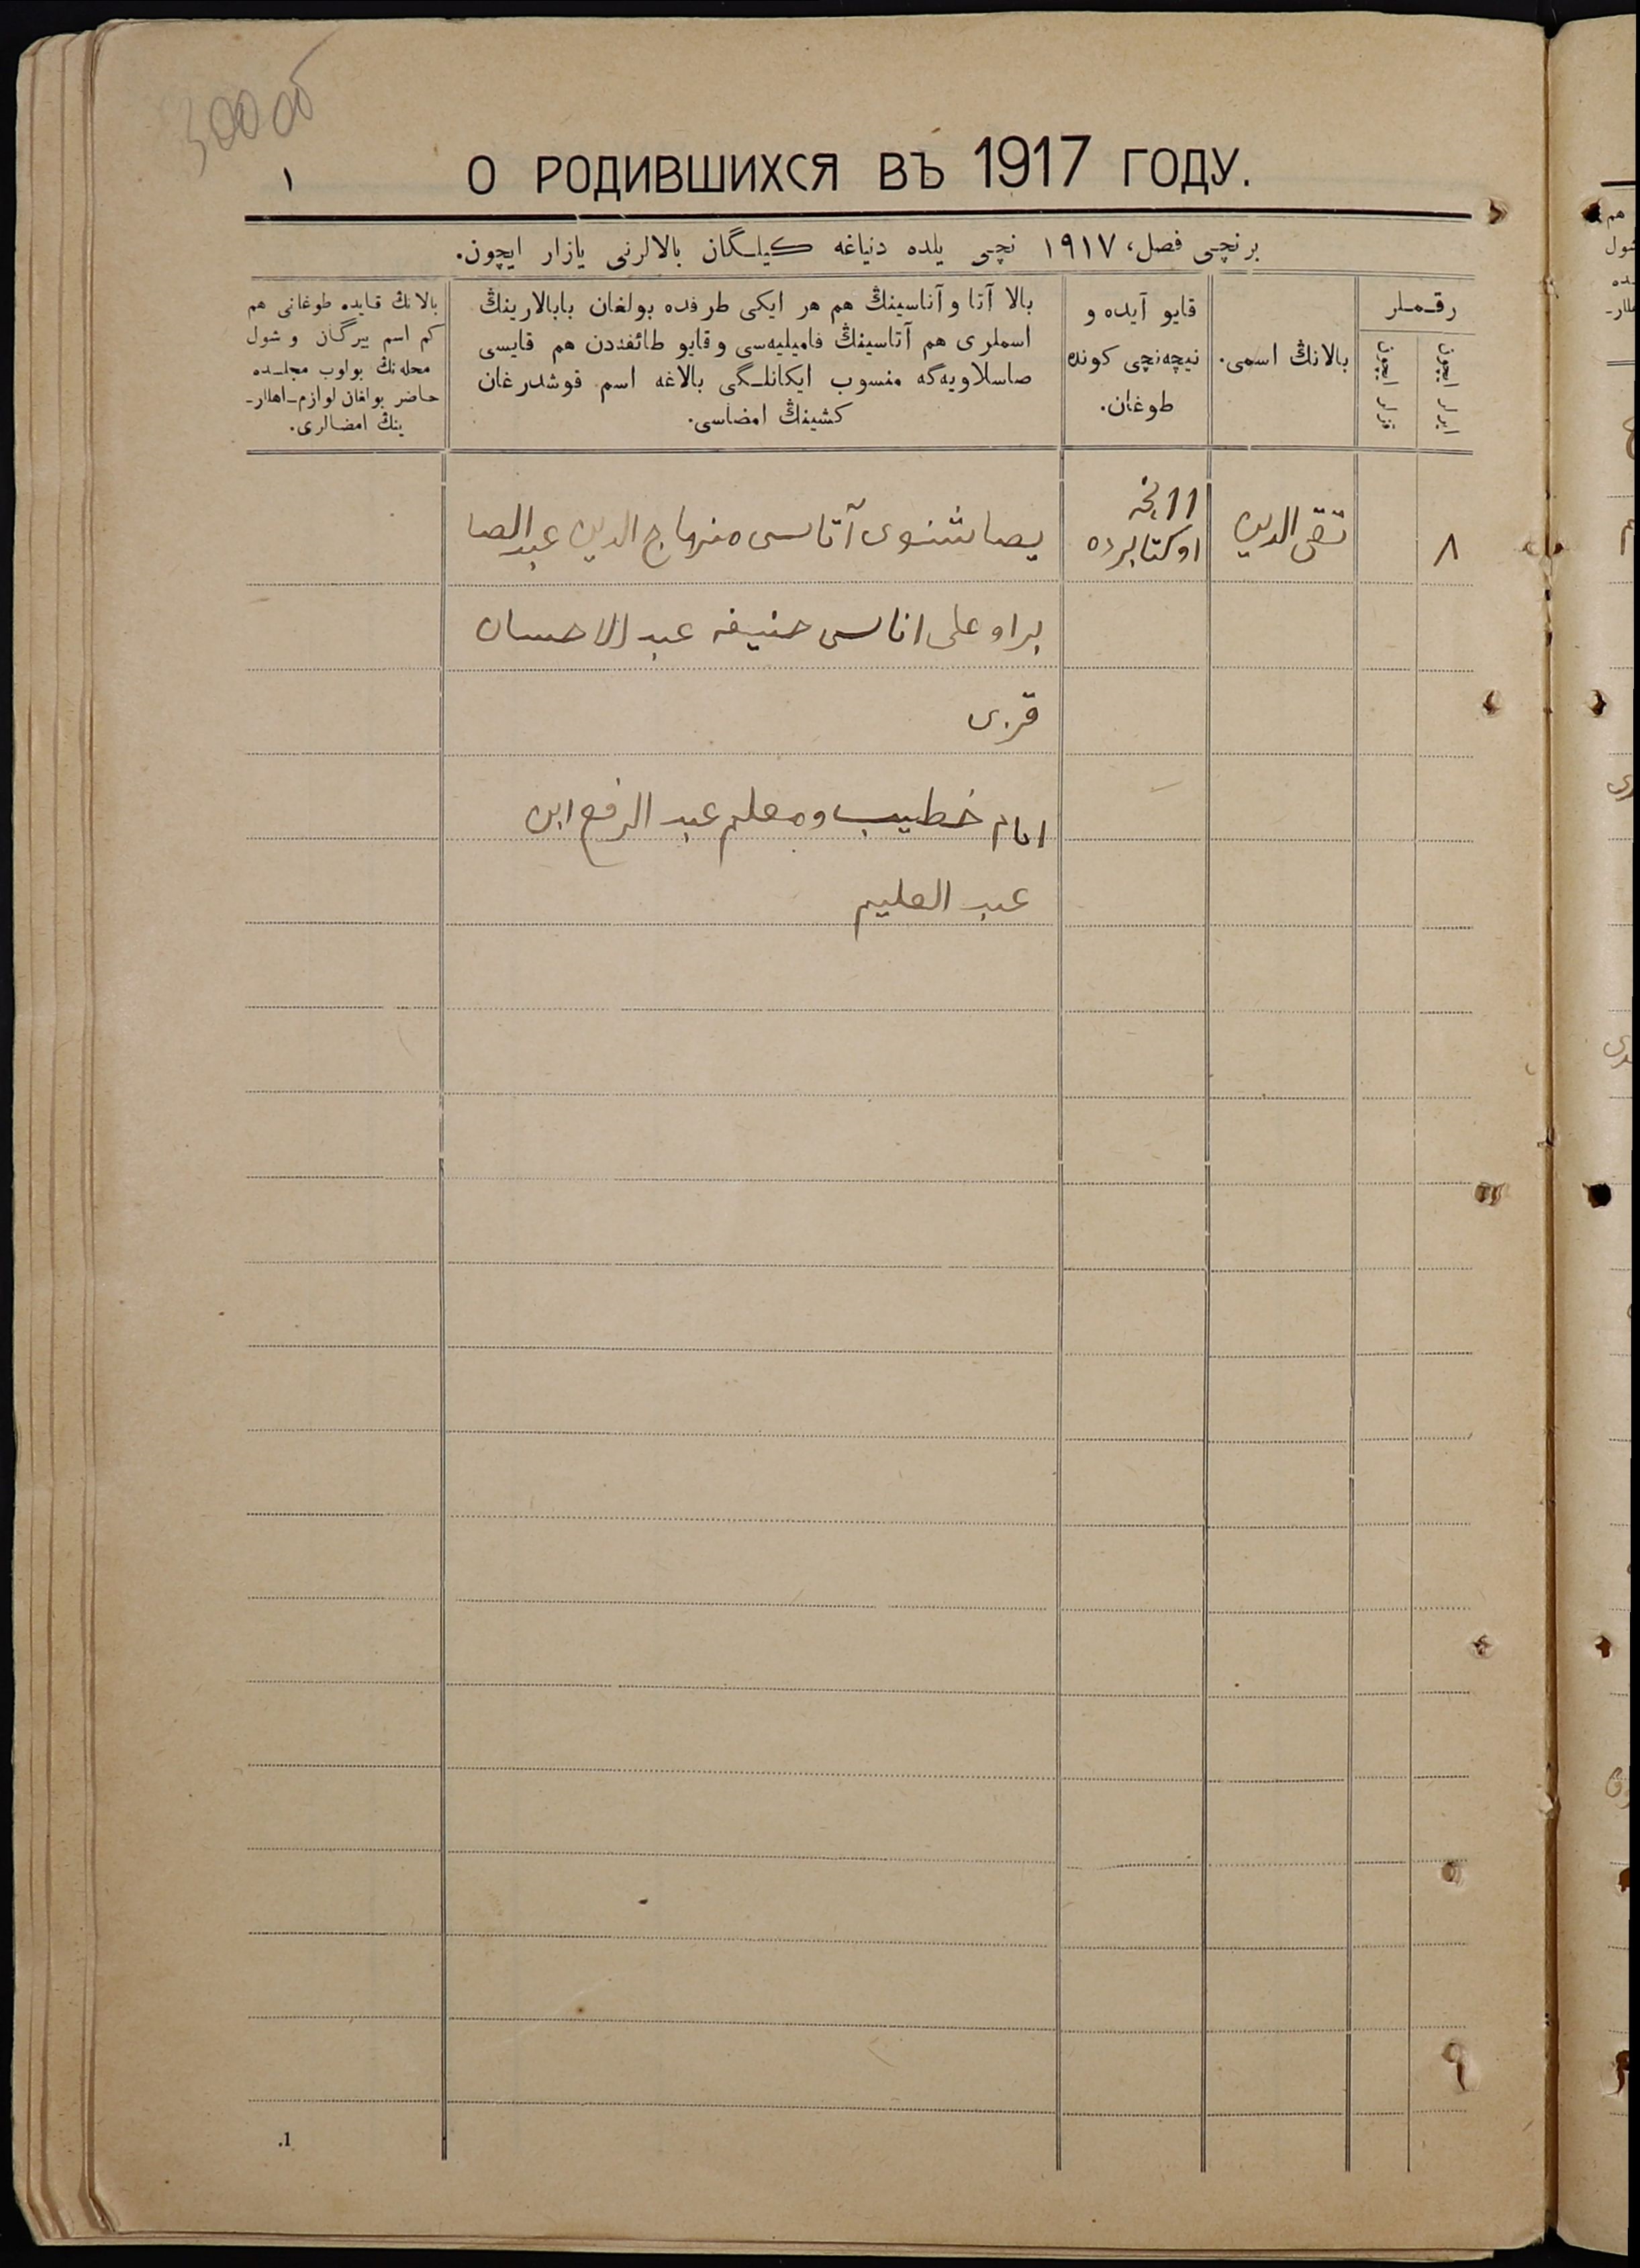 300 об
١
О РОДИВШИХСЯ ВЪ 1917 ГОДУ.
برنچی فصل، ١٩١٧ نچی یلده دنیاغه کیلگان بالالرنی یازار ایچون.
رقملر
ایرلر ایچون
قزلر ایچون
بالانڭ اسمی.
قایو آیده و
نیچه‌نچی کونده
طوغان.
بالا آتا و آناسینڭ هم هر ایکی طرفده بولغان بابالارینڭ
اسملری هم آتاسینڭ فامیلیه‌سی و قایو طائفه‌دن هم قایسی
صاسلاویه‌گه منسوب ایکانلگی بالاغه اسم قوشدرغان
کشینڭ امضاسی.
بالانڭ قایده طوغانی هم
کم اسم بیرگان و شول
محله‌نڭ بولوب مجلسده
حاضر بولغان لوازم‌ـاهلار‌ـ
ینڭ امضالری.
٨
تقی الدین
11 نچی
اوکتابرده
آتاسی منهاج الدین عبد الصا
براو علی اناسی حنیفه عبد الاحسان
قزی
امام خطیب و معلم عبد الرفع ابن
عبد العلیم
1.